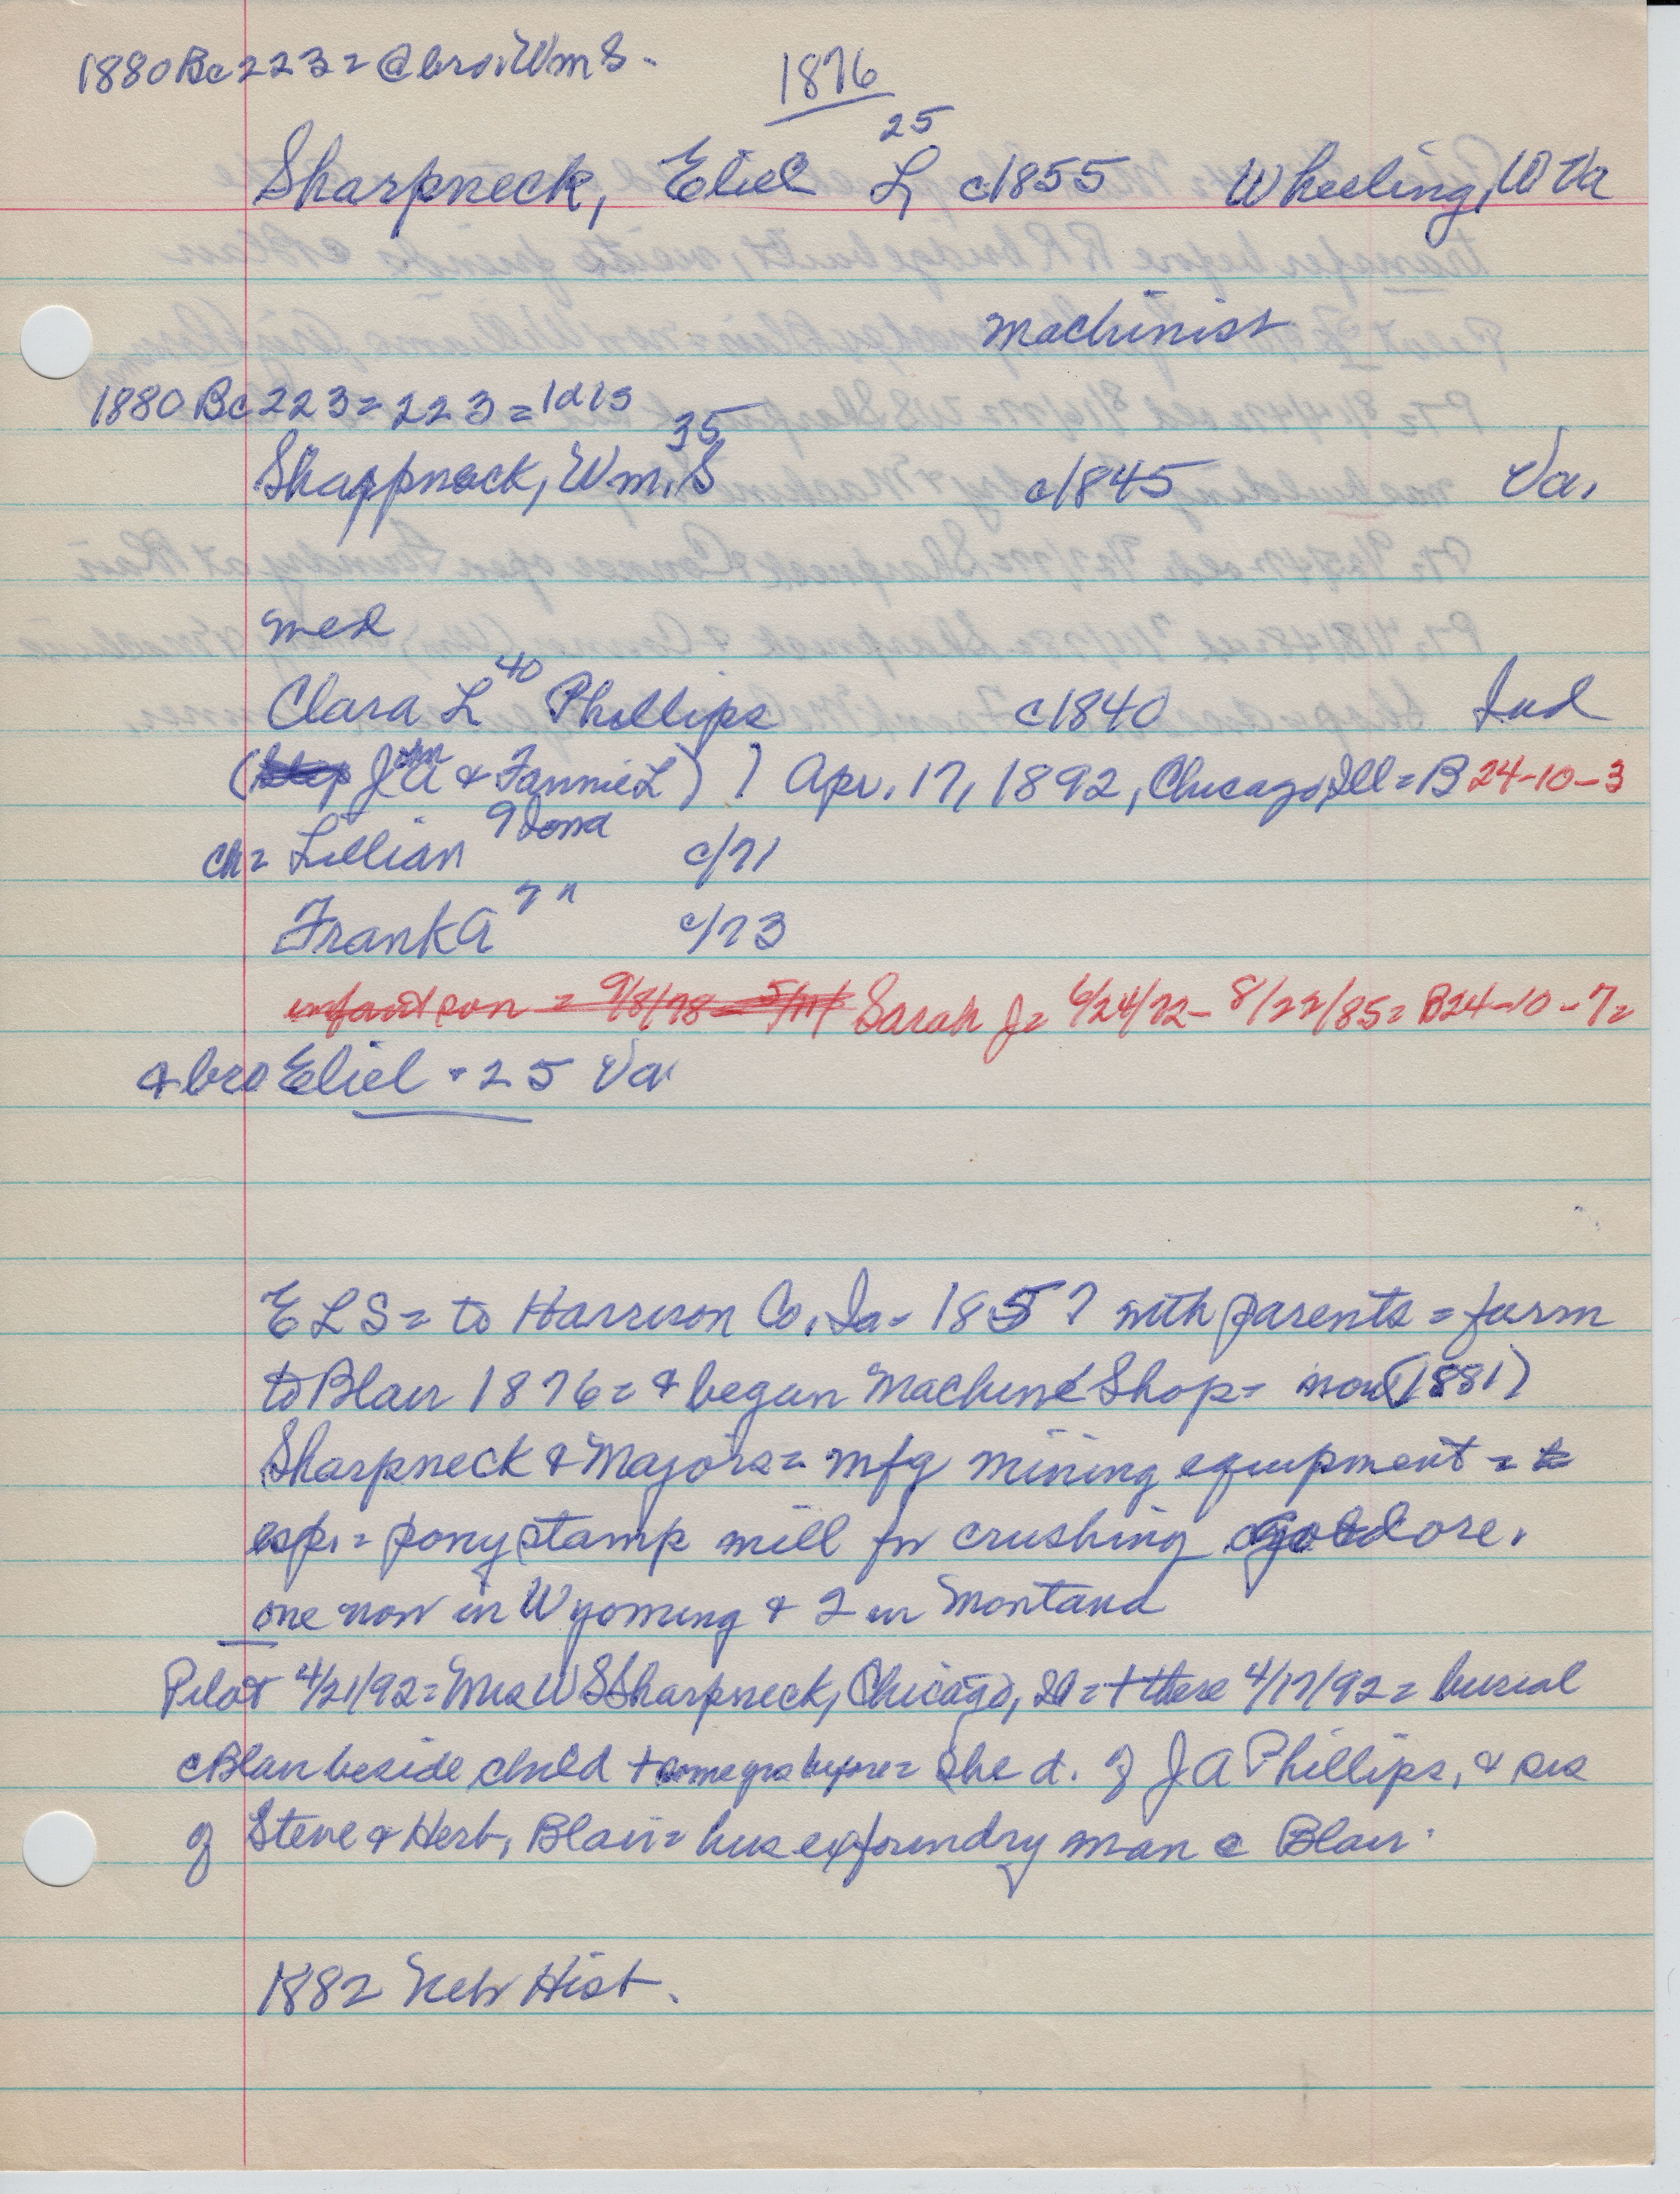 1880 Bc 223 = @ bro. Wm S.
1876
25
Sharpneck, Eliel L c1855 Wheeling, W Va
machinist
1880 Bc 223 = 223 =
35
Sharpneck, Wm. S c1845 Va.
med
40
Clara L Phillips c1840 Ind
( J A & Fannie L ) ) Apr. 17, 1892, Chicago, Ill = B 24-10-3
ch = Lillian 9 Iowa c/71
Frank A 7 " c/73
infant son = 9/8/78 Sarah J = 6/24/72 - 8/22/85 = B24-10-7 =
& bro Eliel - 25 Va
E L S = to Harrison Co. Ia - 185? with parents = farm
to Blair 1876 = & began Machine Shop = now (1881)
Sharpneck & Majors = mfg mining equipment =
esp. = pony stamp mill for crushing gold ore.
one now in Wyoming & 2 in Montana
Pilot 4/21/92 = Mrs W S Sharpneck, Chicago, Ill = + there 4/17/92 = burial
@ Blair beside child + some yrs before = she d. of J A Phillips, & sis
of Steve & Herb, Blair = hus ex foundry man @ Blair.
1882 Neb Hist.